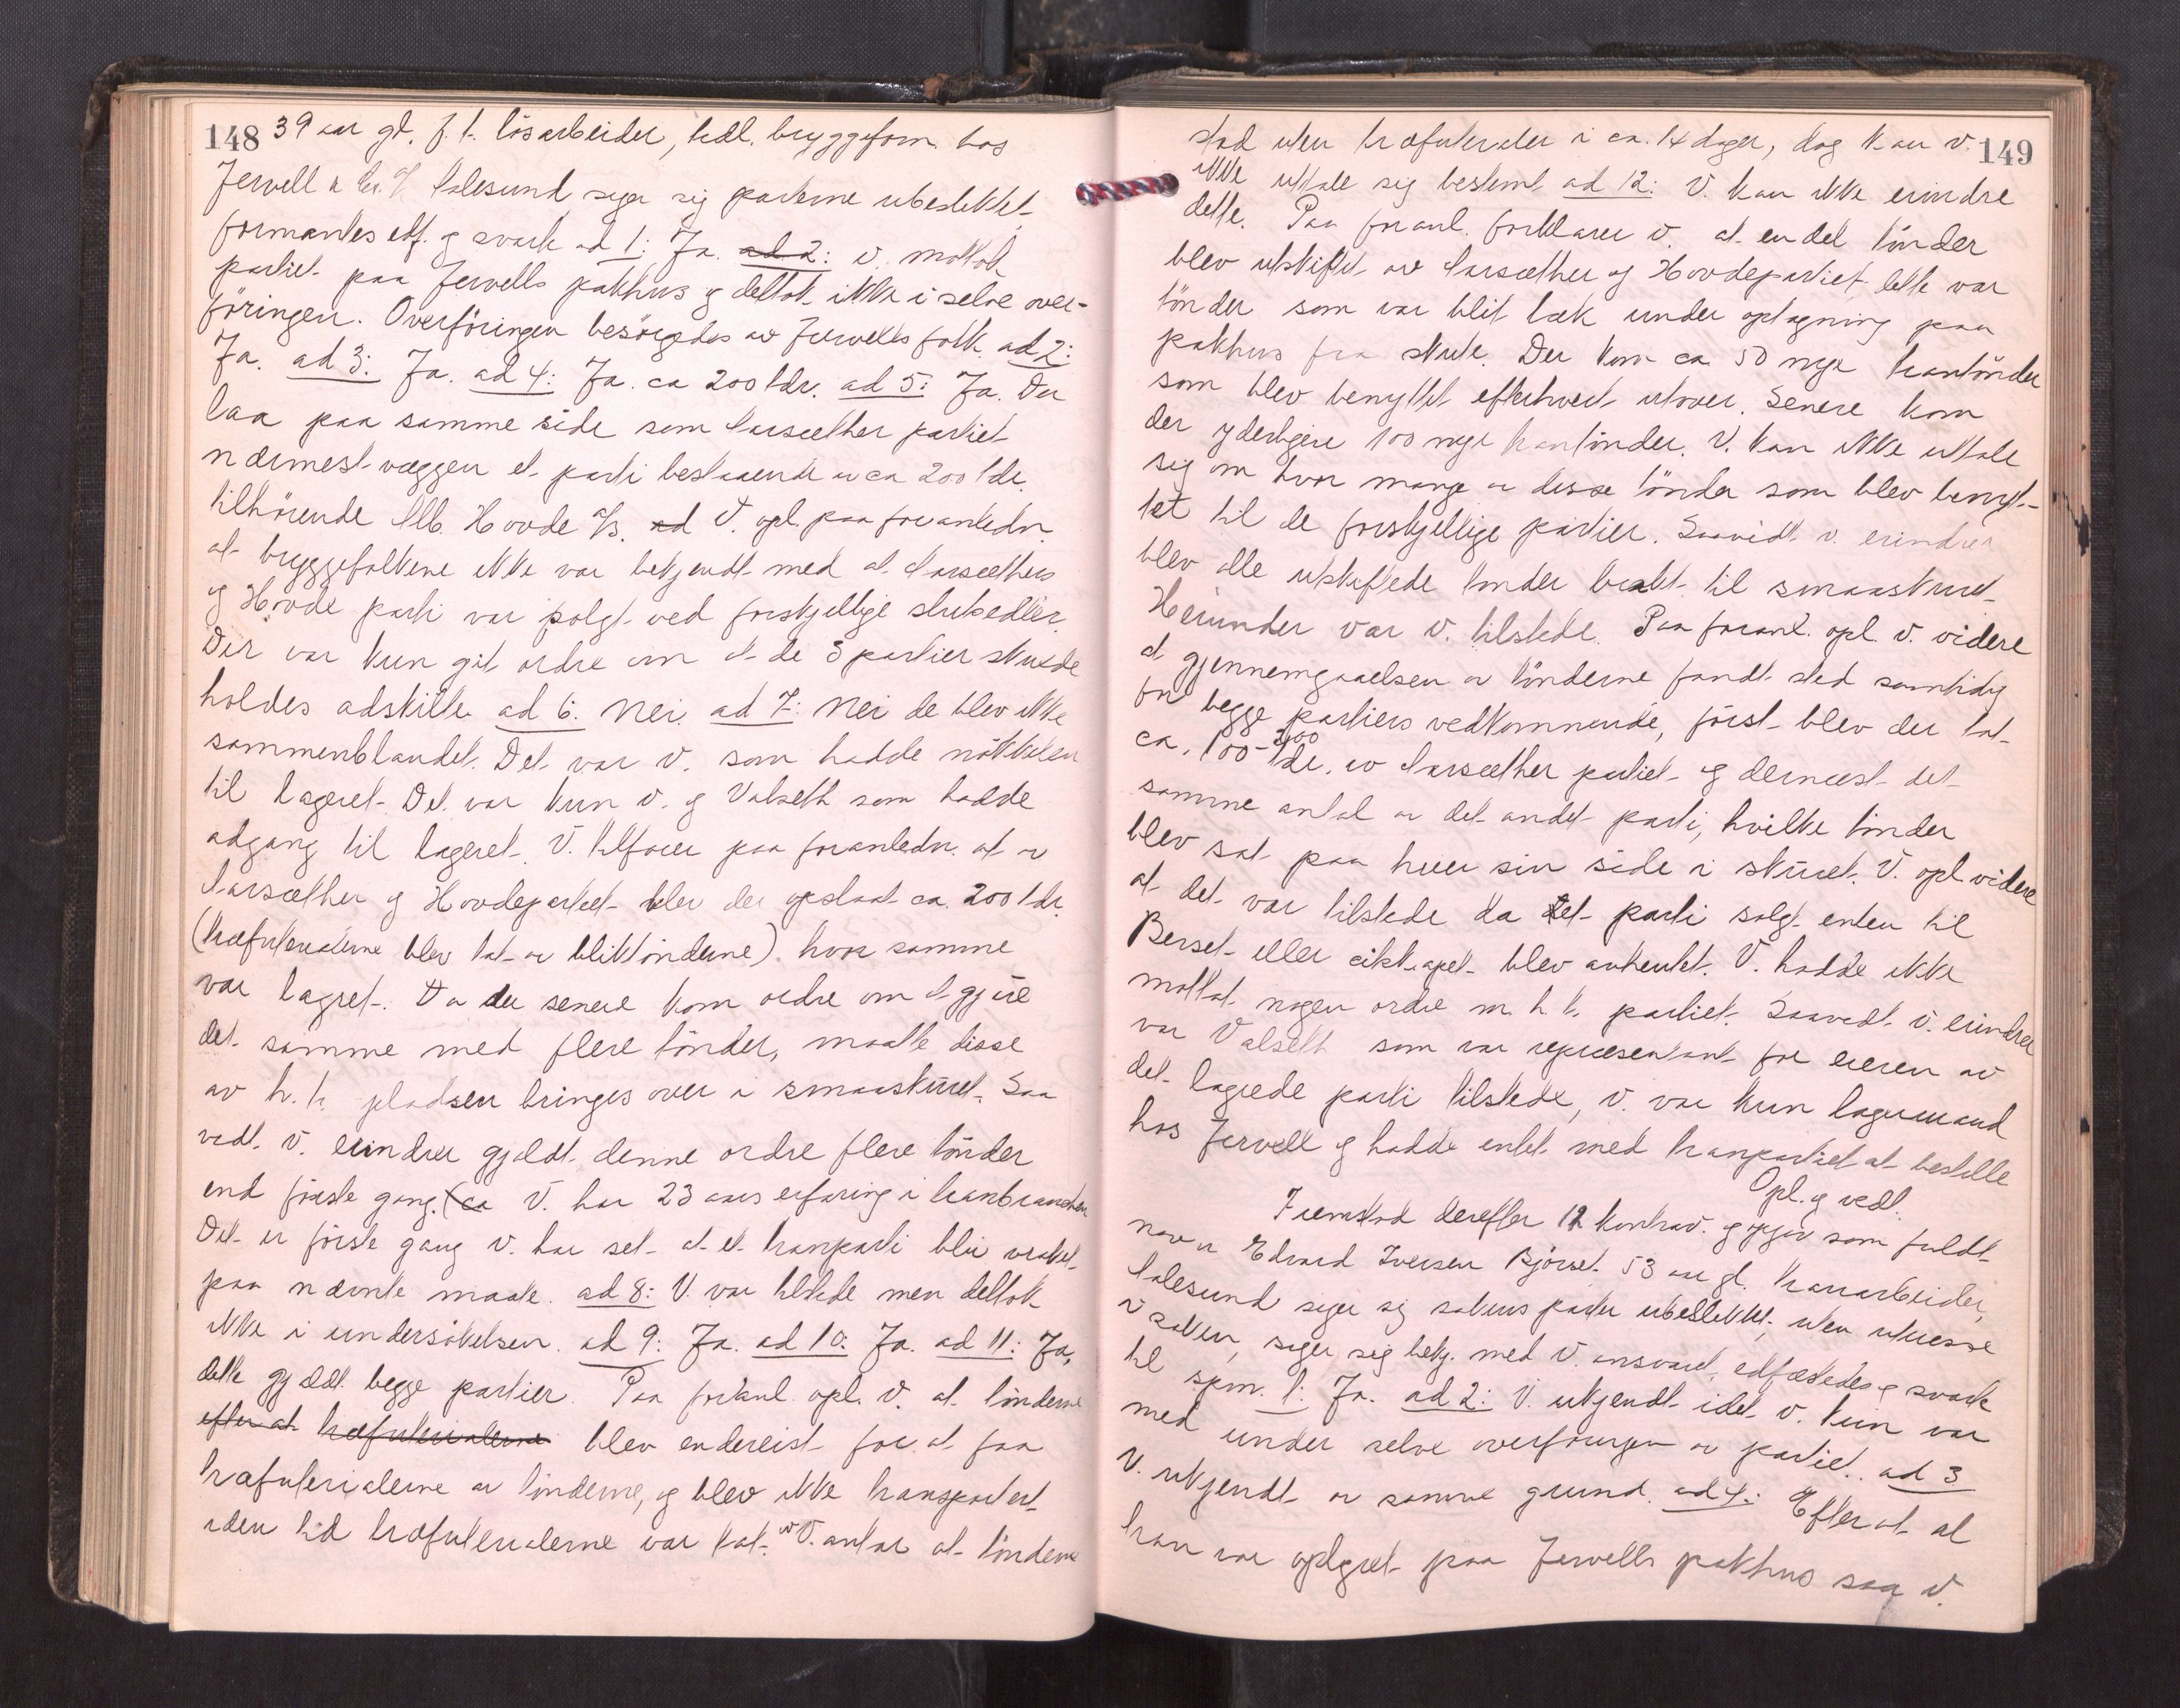 148
39 aar gl. f. t. lösarbeider, tidl. bryggeform. hos
Jervell & Co. A/S Aalesund siger sig parterne ubeslektet,
formantes edf. og svarte ad 1: Ja. ad 2: V. mottok
partiet paa Jervells pakhus og deltok ikke i selve over-
föringen. Overföringen besörgedes av Jervells folk. ad 2:
Ja. ad 3: Ja. ad 4: Ja. ca 200 tdr. ad 5: Ja. Der
laa paa samme side som Aarsæther partiet
nærmest væggen et parti bestaaende av ca 200 tdr.
tilhörende Alb. Hovde A/S. ad V. opl. paa foranledn.
at bryggefolkene ikke var bekjendt med at Aarsæthers
og Hovde parti var solgt ved forskjellige slutsedler.
Der var kun git ordre om at de 3 partier skulde
holdes adskilte ad 6: Nei. ad 7: Nei de blev ikke
sammenblandet. Det var V. som hadde nökkelen
til lageret. Det var kun V. og Valseth som hadde
adgang til lageret. V. tilföier paa foranledn. at av
Aarsæther og Hovdepartiet blev der opslaat ca. 200 tdr.
(træfuterialerne blev tat av bliktönderne) hvor samme
var lagret. Da der senere kom ordre om at gjöre
det samme med flere tönder, maatte disse
av h. t. pladsen bringes over i smaaskuret. Saa
vidt V. erindrer gjaldt denne ordre flere tönder
end förste gang. (ca V. har 23 aars erfaring i tranbranchen
Det er förste gang V. har set at et tranparti blir vraket
paa nævnte maate. ad 8: V. var tilstede men deltok
ikke i undersökelsen. ad 9: Ja. ad 10: Ja. ad 11: Ja,
dette gjaldt begge partier. Paa foranl. opl. V. at tönderne
efter at træfuterialerne blev endereist for at faa
træfuterialerne av tönderne, og blev ikke transportert
i den tid træfuterialerne var tat av V. antar at tönderne
149
stod uten træfuteraler i ca. 14 dager, dog kan V.
ikke uttale sig bestemt ad 12: V. kan ikke erindre
dette. Paa foranl. forklarer V. at en del tönder
blev utskiftet av Aarsæther og Hovdepartiet, dette var
tönder som var blit læk under optagning paa
pakhus fra skute. Der kom ca 50 nye trantönder
som blev benyttet efterhvert utover. Senere kom
der yderligere 100 nye trantönder. V. kan ikke uttale
sig om hvor mange av disse tönder som blev benyt-
tet til de forskjellige partier. Saavidt V. erindrer
blev alle utskiftede tönder bragt til smaaskuret
Herunder var V. tilstede. Paa foranl. opl. V. videre
at gjennemgaaelsen av tönderne fandt sted samtidig
for begge partiers vedkommende, först blev der tat
ca. 100-200 tdr. av Aarsæther partiet og dernæst det
samme antal av det andet parti, hvilke tönder
blev sat paa hver sin side i skuret. V. opl. videre
at det var tilstede da det parti solgt enten til
Berset eller eikekapet blev avhentet. V. hadde ikke
mottat nogen ordre m. h. t. partiet. Saavidt V. erindrer
var Valseth som var repræsentant for eieren av
det lagrede parti tilstede, V. var kun lagermand
hos Jervell og hadde intet med tranpartiet at bestille
Opl. og vedt.
Fremstod derefter 12 kontrav. og opgav som fuldt
navn Edvard Iversen Bjørset 53 aar gl. tranarbeider,
Aalesund siger sig sakens parter ubeslektet, uten interesse
i saken, siger sig bekj. med V. ansvaret, edfæstedes og svarte
til spm. 1: Ja. ad 2: V. ukjendt idet V. kun var
med under selve overföringen av partiet. ad 3
V. ukjendt av samme grund. ad 4: Efter at al
tran var oplagret paa Jervells pakhus saa V.